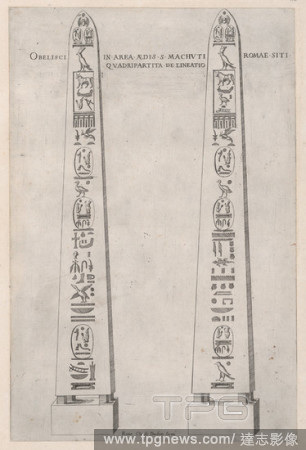 OBELISCI IN AREA ÆDIS S MACHVTI ROMAE SITI
QVADRIPARTITA DELINEATIO
TPG
www.tpgnews.com/達志影像